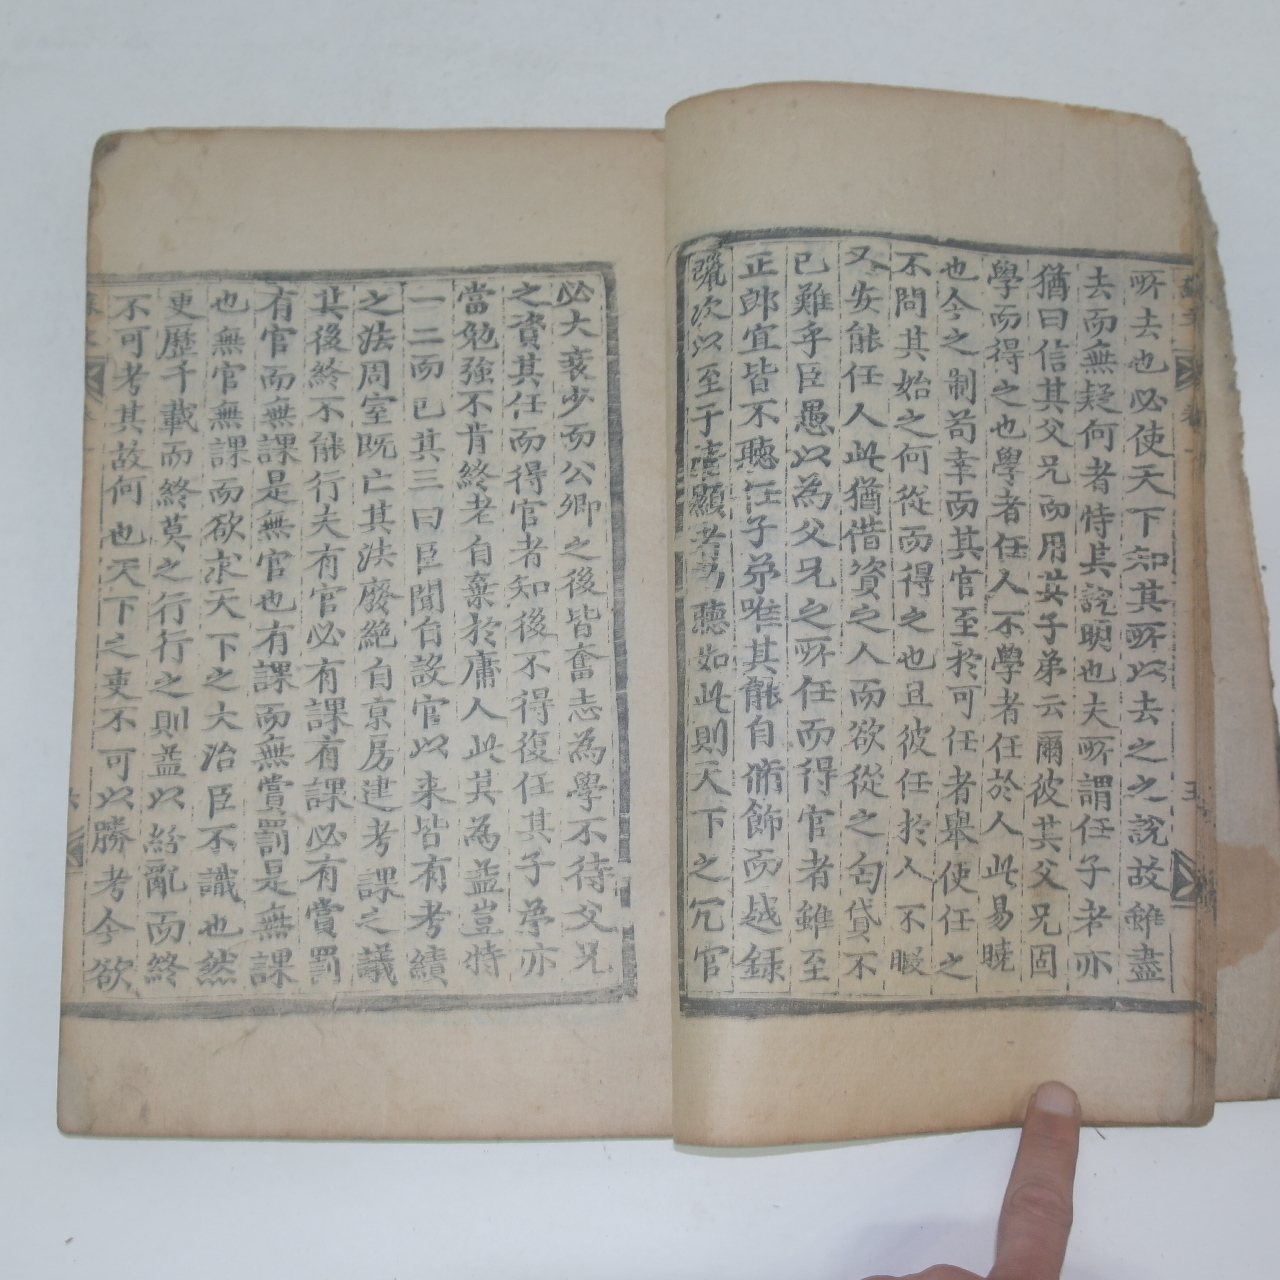 所去也必使天下知其所以去之之說故雖盡
去而無疑何者恃其說明也夫所謂任子者亦
猶曰信其父兄而用其子弟云爾彼其父兄固
學而得之也學者任人不學者任於人此易曉
也今之制苟幸而其官至於可任者舉使任之
不問其始之何從而得之也且彼任於人不暇
又安能任人此猶借資之人而欲從之匄貸不
已難乎臣愚以為父兄之所任而得官者雖至
正郎宜皆不聽任子弟唯其能自脩飾而越錄
躐次以至于清顯者乃聽如此則天下之冗官
必大衰少而公卿之後皆奮志為學不待父兄
之資其任而得官者知後不得復任其子弟亦
當勉強不肯終老自棄於庸人此其為益豈特
一二而已其三曰臣聞自設官以来皆有考績
之法周室既亡其法廢絶自京房建考課之議
其後終不能行夫有官必有課有課必有賞罰
有官而無課是無官也有課而無賞罰是無課
也無官無課而欲求天下之大治臣不識也然
更歷千載而終莫之行行之則益以紛亂而終
不可考其故何也天下之吏不可以勝考今欲